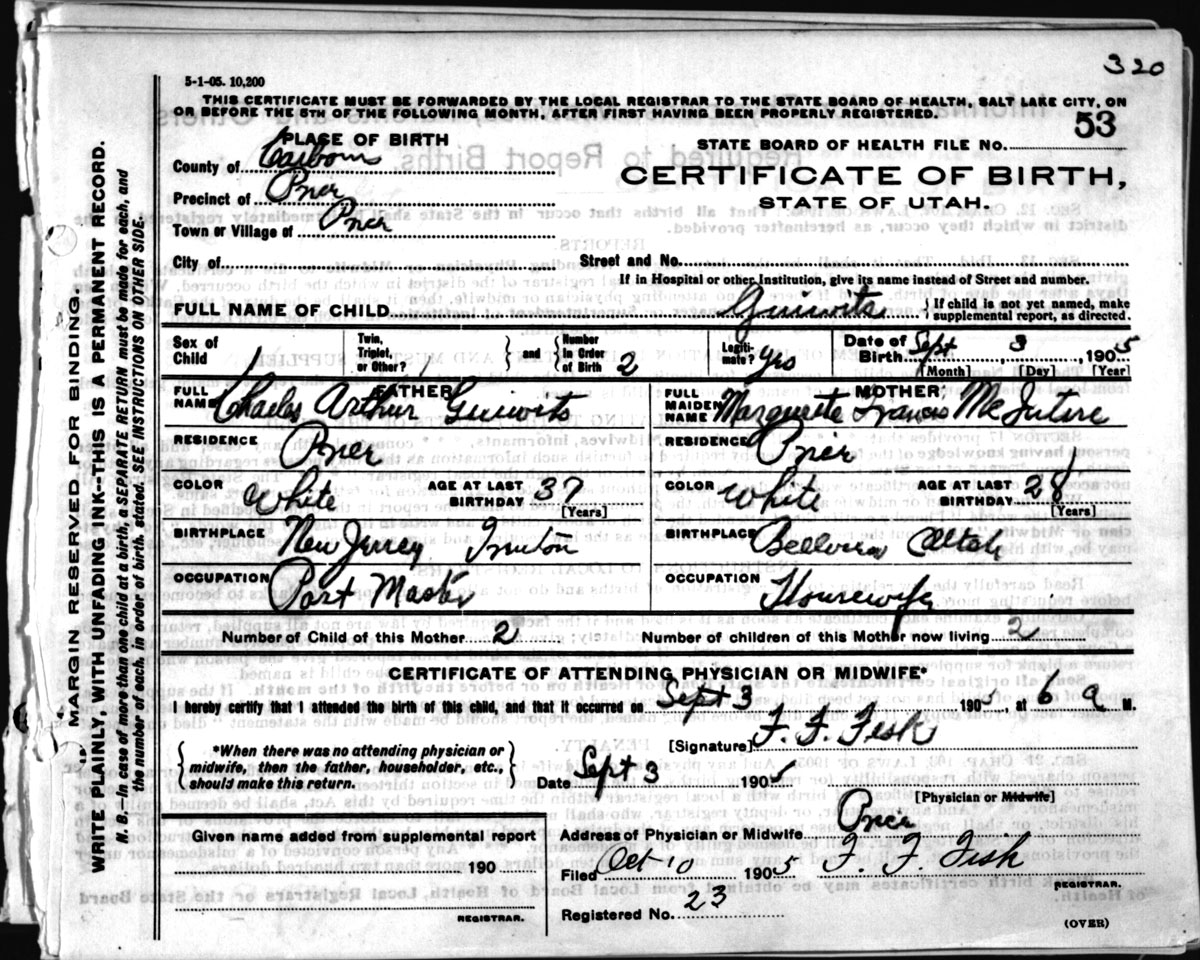 320
5-1-05. 10,200
THIS CERTIFICATE MUST BE FORWARDED BY THE LOCAL REGISTRAR TO THE STATE BOARD OF HEALTH, SALT LAKE CITY, ON
OR BEFORE THE 5TH OF THE FOLLOWING MONTH, AFTER FIRST HAVING BEEN PROPERLY REGISTERED.
53
PLACE OF BIRTH
STATE BOARD OF HEALTH FILE NO.
County of Carbon
CERTIFICATE OF BIRTH,
Precinct of Price
STATE OF UTAH.
Town or Village of Price
City of
Street and No.
If in Hospital or other Institution, give its name instead of Street and number.
FULL NAME OF CHILD Guiwits { If child is not yet named, make
supplemental report, as directed.
Sex of
Child
Twin,
Triplet,
or Other?
} and { Number
in Order
of Birth 2
Legiti-
mate? yes
Date of
Birth Sept 3, 1905
[Month] [Day] [Year]
FATHER
FULL
NAME Charles Arthur Guiwits
MOTHER
FULL
MAIDEN
NAME Marguerite Francis McIntire
RESIDENCE Price
RESIDENCE Price
COLOR White
AGE AT LAST
BIRTHDAY 37
[Years]
COLOR White
AGE AT LAST
BIRTHDAY 28
[Years]
BIRTHPLACE New Jersey Trenton
BIRTHPLACE Utah
OCCUPATION Post Master
OCCUPATION Housewife
Number of Child of this Mother 2
Number of children of this Mother now living 2
CERTIFICATE OF ATTENDING PHYSICIAN OR MIDWIFE*
I hereby certify that I attended the birth of this child, and that it occurred on Sept 3 1905, at 6 a M.
{ *When there was no attending physician or
midwife, then the father, householder, etc.,
should make this return. }
[Signature] F. F. Fisk
Date Sept 3 1905
[Physician or Midwife]
Given name added from supplemental report
190
REGISTRAR.
Address of Physician or Midwife Price
Filed Oct 10 1905 F. F. Fisk
REGISTRAR.
Registered No. 23
(OVER)
MARGIN RESERVED FOR BINDING.
WRITE PLAINLY, WITH UNFADING INK--THIS IS A PERMANENT RECORD.
N. B.--In case of more than one child at a birth, a SEPARATE RETURN must be made for each, and
the number of each, in order of birth, stated. SEE INSTRUCTIONS ON OTHER SIDE.